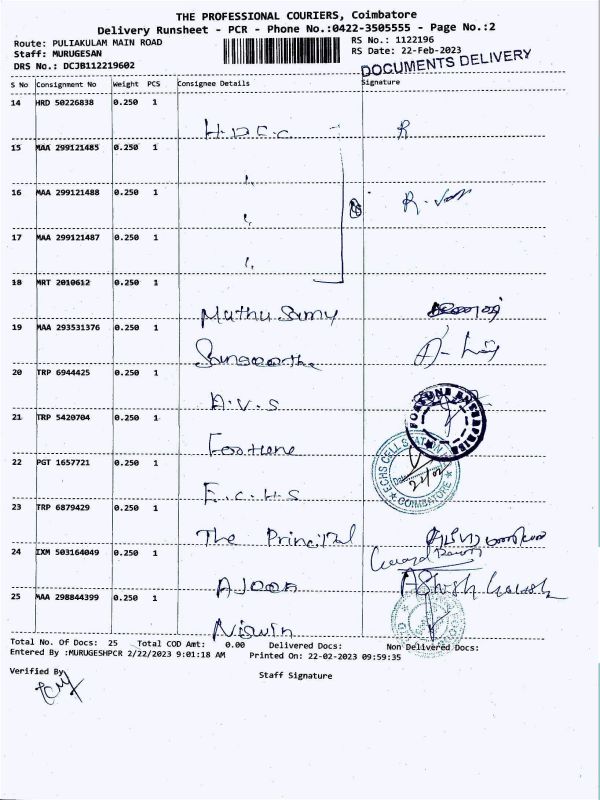 THE PROFESSIONAL COURIERS, Coimbatore
Delivery Runsheet - PCR - Phone No.:0422-3505555 - Page No.:2
Route: PULIAKULAM MAIN ROAD
RS No.: 1122196
Staff: MURUGESAN
RS Date: 22-Feb-2023
DRS No.: DCJB112219602
DOCUMENTS DELIVERY
S No Consignment No Weight PCS Consignee Details Signature
14 HRD 50226838 0.250 1
H.D.F.C R
15 MAA 299121485 0.250 1
16 MAA 299121488 0.250 1
17 MAA 299121487 0.250 1
18 MRT 2010612 0.250 1
Muthu Samy
19 MAA 293531376 0.250 1
20 TRP 6944425 0.250 1
A.V.S
21 TRP 5420704 0.250 1
FORTUNE ENTERPRISE
Fortune
22 PGT 1657721 0.250 1
ECHS CELL STATION
COIMBATORE
E.C.H.S
23 TRP 6879429 0.250 1
The Principal
24 IXM 503164049 0.250 1
AJOON
25 MAA 298844399 0.250 1
Niswin
Total No. Of Docs: 25 Total COD Amt: 0.00 Delivered Docs: Non Delivered Docs:
Entered By :MURUGESHPCR 2/22/2023 9:01:18 AM Printed On: 22-02-2023 09:59:35
Verified By
Staff Signature